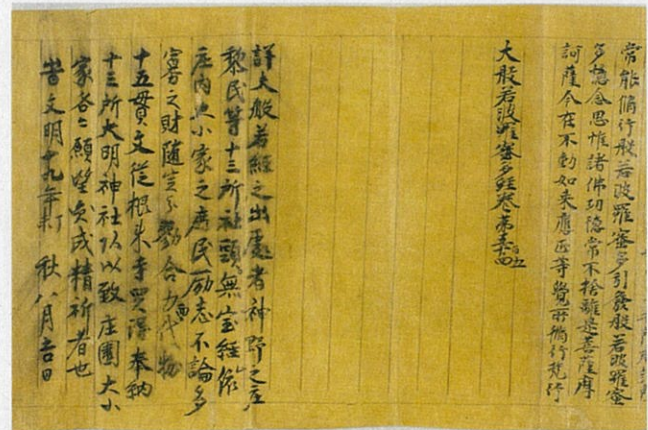 常能脩行般若波羅蜜多引發般若波羅蜜
多憶念思惟諸佛功德常不捨離是菩薩摩
訶薩今在不動如來應正等覺所脩行梵行
大般若波羅蜜多經卷第
詳大般若經之出處者神野之庄
黎民等十三所社頭無宝経
庄内大小家之庶民励志不論多
寡之財随分勠合力代物
十五貫文従根来寺買得奉納
十三所大明神社仍以致庄園大小
家各々願望矣成精祈者也
文明十九年 秋八月吉日